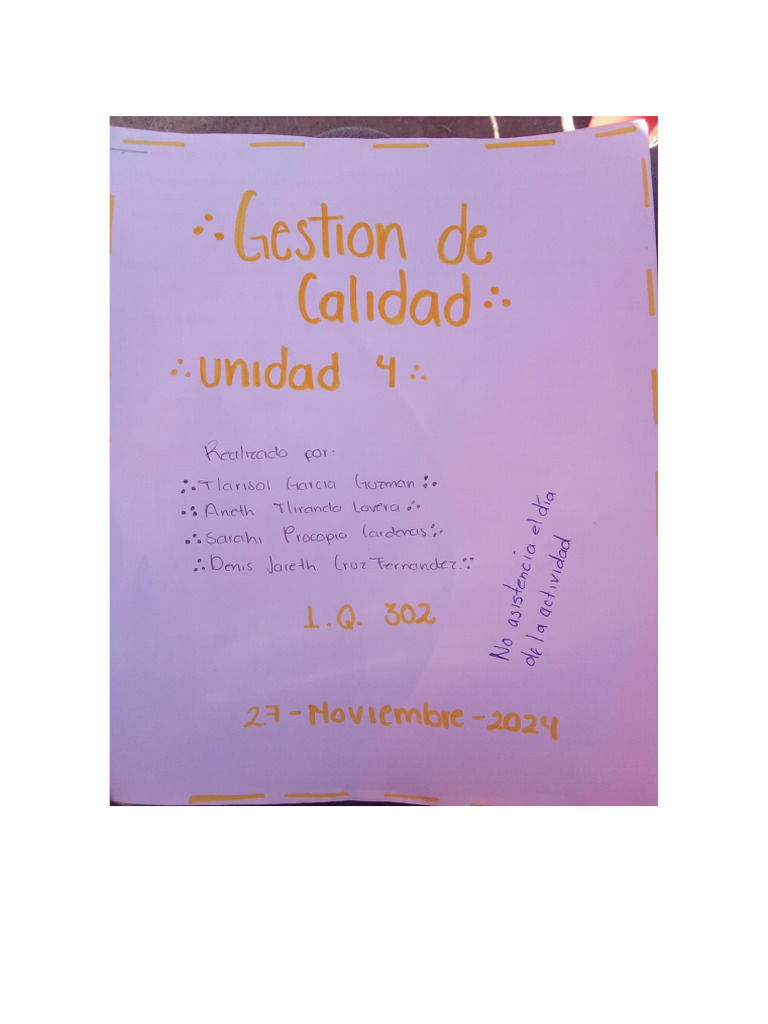 Gestion de
Calidad
Unidad 4
Realizado por:
Marisol Garcia Guzman
Aneth Mirando Lovera
Sarahi Procopio Cardenas
Denis Jareth Cruz Fernandez
I.Q. 302
No asistencia el día
de la actividad
27-Noviembre-2024